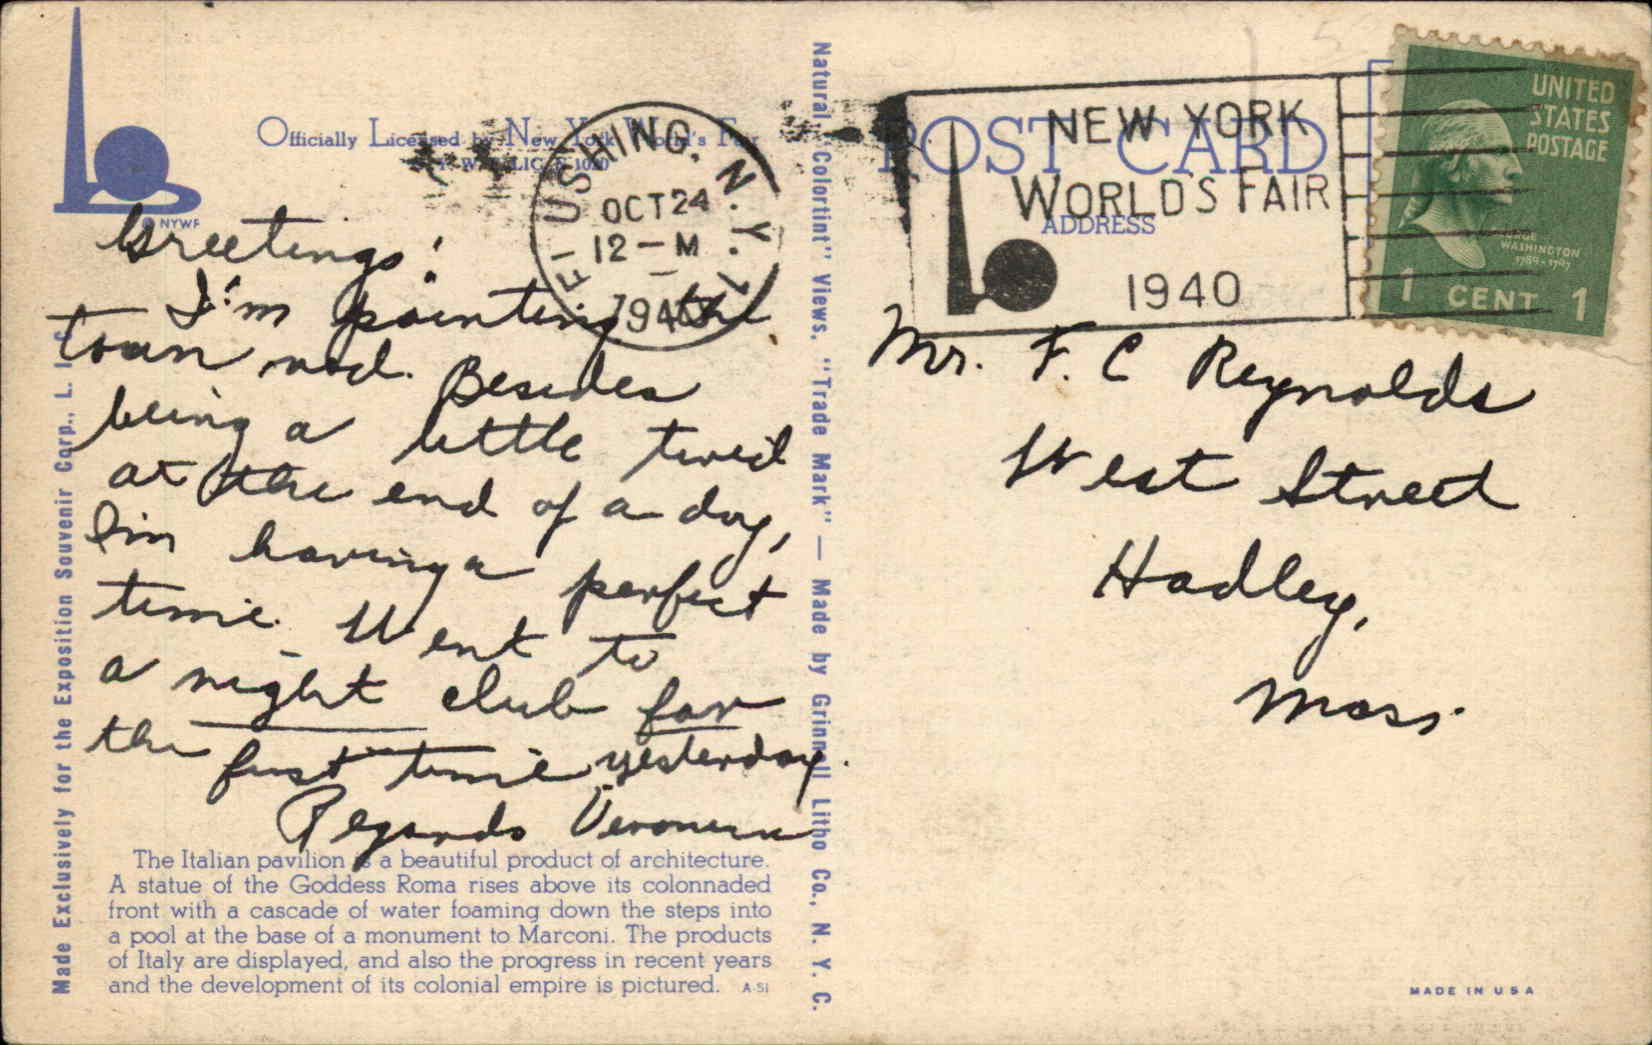 Officially Licensed by New York World's Fair
© NYWF
FLUSHING, N.Y.
OCT 24
12 - M
1940
NEW YORK
WORLD'S FAIR
1940
POST CARD
ADDRESS
UNITED
STATES
POSTAGE
GEORGE
WASHINGTON
1789-1797
1 CENT 1
Greetings!
I'm painting the
town red. Besides
being a little tired
at the end of a day,
I'm having a perfect
time. Went to
a night club for
the first time yesterday.
Regards Veronica
Mr. F. C Reynolds
West Street
Hadley,
Mass.
The Italian pavilion is a beautiful product of architecture.
A statue of the Goddess Roma rises above its colonnaded
front with a cascade of water foaming down the steps into
a pool at the base of a monument to Marconi. The products
of Italy are displayed, and also the progress in recent years
and the development of its colonial empire is pictured. A-51
Made Exclusively for the Exposition Souvenir Corp., L. I. C.
Natural "Colortint" Views. "Trade Mark" — Made by Grinnell Litho Co., N. Y. C.
MADE IN U S A